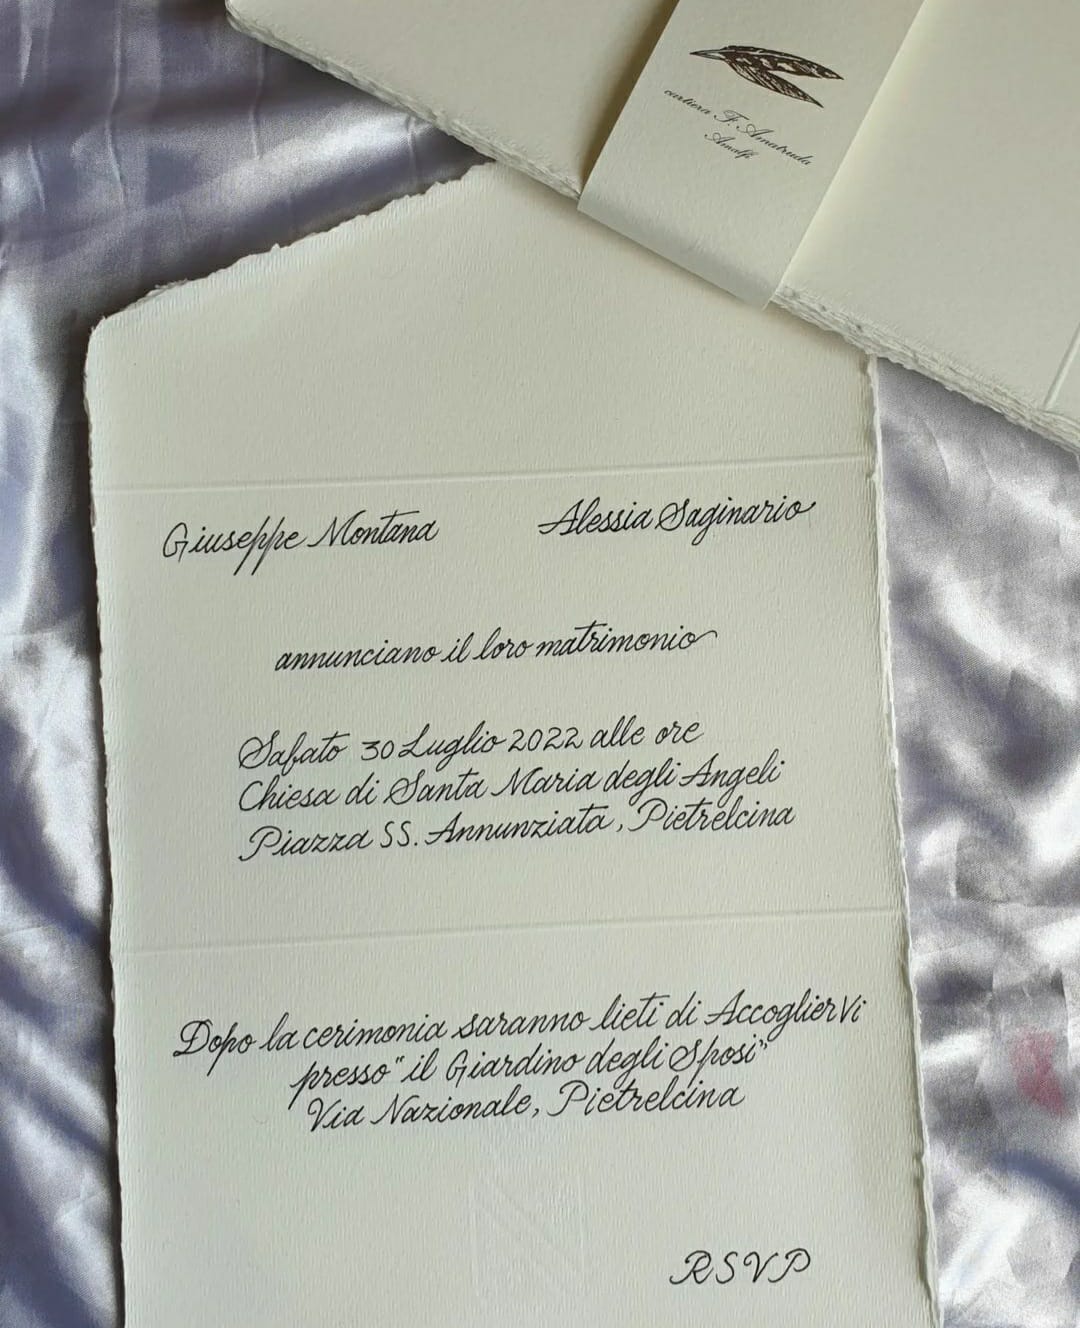 cartiera F. Amatruda
Amalfi
Giuseppe Montana Alessia Saginario
annunciano il loro matrimonio
Sabato 30 Luglio 2022 alle ore
Chiesa di Santa Maria degli Angeli
Piazza SS. Annunziata, Pietrelcina
Dopo la cerimonia saranno lieti di AccoglierVi
presso "il Giardino degli Sposi"
Via Nazionale, Pietrelcina
RSVP